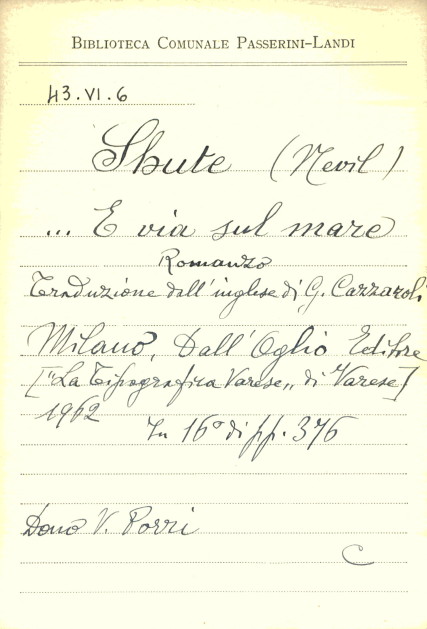 BIBLIOTECA COMUNALE PASSERINI-LANDI
43.VI.6
Shute (Nevil)
... E via sul mare
Romanzo
Traduzione dall'inglese di G. Cazzaroli
Milano, Dall'Oglio Editore
["La Tipografica Varese„ di Varese]
1962
In 16° di pp. 376
Dono V. Porri
C